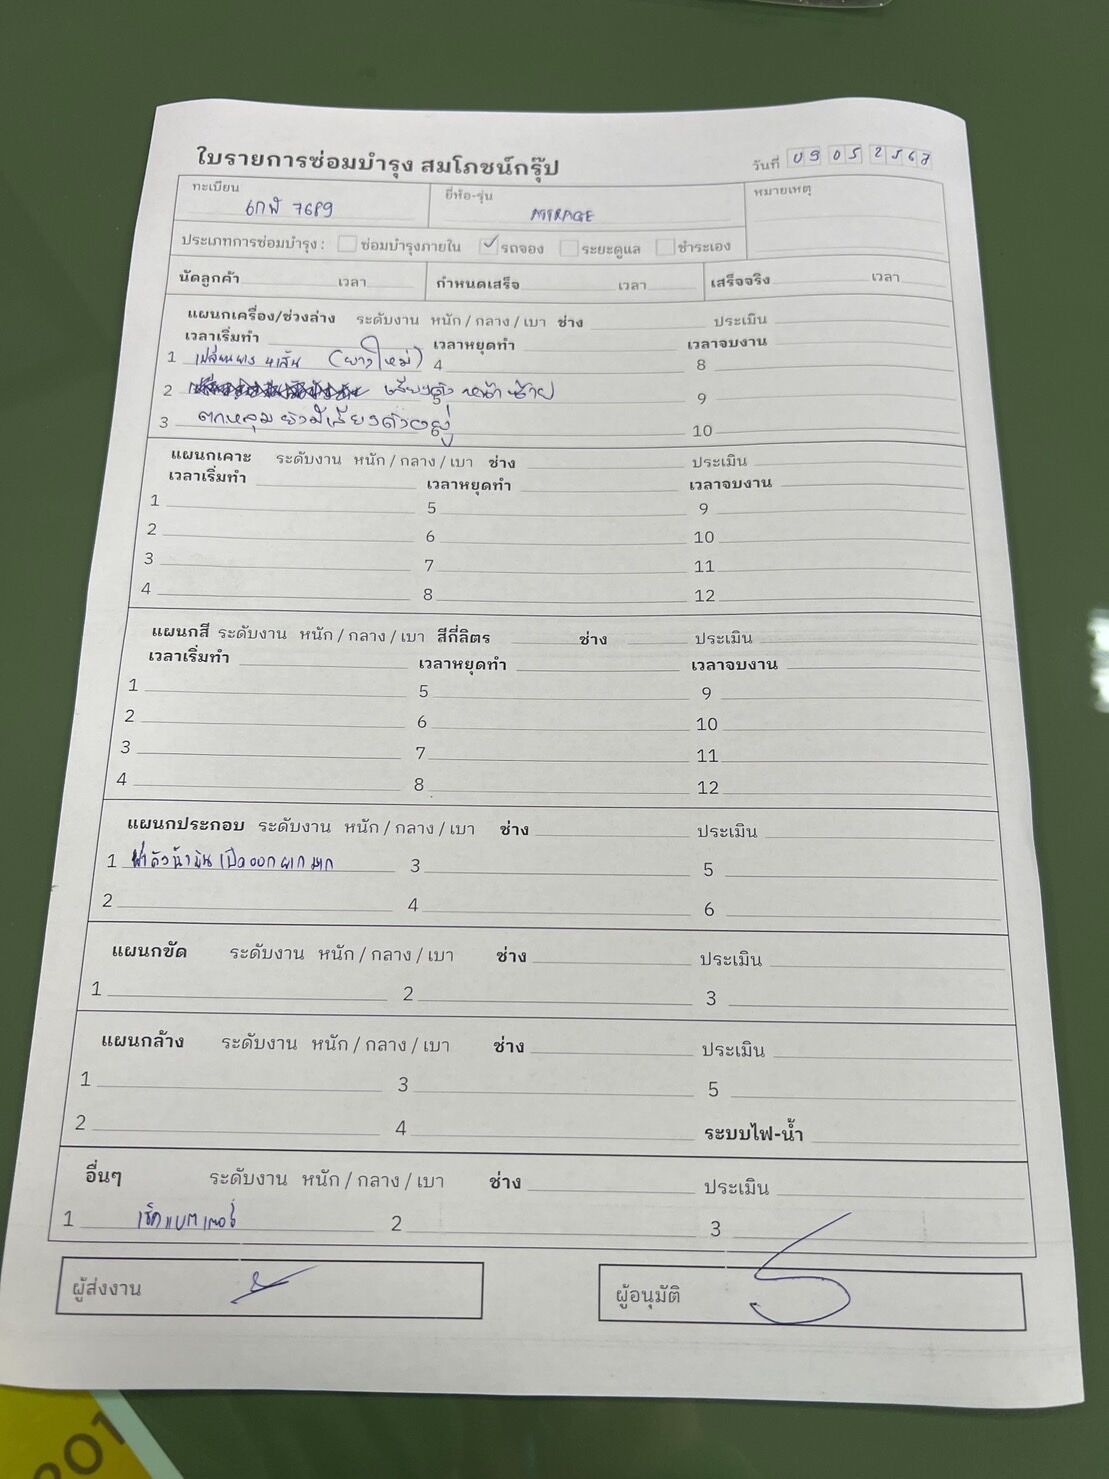 ใบรายการซ่อมบำรุง สมโภชน์กรุ๊ป
วันที่ 09 05 2567
ทะเบียน
ยี่ห้อ-รุ่น
หมายเหตุ
MIRAGE
ประเภทการซ่อมบำรุง : ซ่อมบำรุงภายใน ✓ รถจอง ระยะดูแล ชำระเอง
นัดลูกค้า เวลา กำหนดเสร็จ เวลา เสร็จจริง เวลา
แผนกเครื่อง/ช่วงล่าง ระดับงาน หนัก / กลาง / เบา ช่าง ประเมิน
เวลาเริ่มทำ เวลาหยุดทำ เวลาจบงาน
1 เปลี่ยนยาง 4 เส้น (ยางใหม่) 4 8
2 เสียงดัง หน้าซ้าย 9
3 ตกหลุม ยังมีเสียงดังอยู่ 10
แผนกเคาะ ระดับงาน หนัก / กลาง / เบา ช่าง ประเมิน
เวลาเริ่มทำ เวลาหยุดทำ เวลาจบงาน
1 5 9
2 6 10
3 7 11
4 8 12
แผนกสี ระดับงาน หนัก / กลาง / เบา สีกี่ลิตร ช่าง ประเมิน
เวลาเริ่มทำ เวลาหยุดทำ เวลาจบงาน
1 5 9
2 6 10
3 7 11
4 8 12
แผนกประกอบ ระดับงาน หนัก / กลาง / เบา ช่าง ประเมิน
1 ฝาถังน้ำมันเปิดออกยากมาก 3 5
2 4 6
แผนกขัด ระดับงาน หนัก / กลาง / เบา ช่าง ประเมิน
1 2 3
แผนกล้าง ระดับงาน หนัก / กลาง / เบา ช่าง ประเมิน
1 3 5
2 4 ระบบไฟ-น้ำ
อื่นๆ ระดับงาน หนัก / กลาง / เบา ช่าง ประเมิน
1 เช็คแบตเตอรี่ 2 3
ผู้ส่งงาน
ผู้อนุมัติ